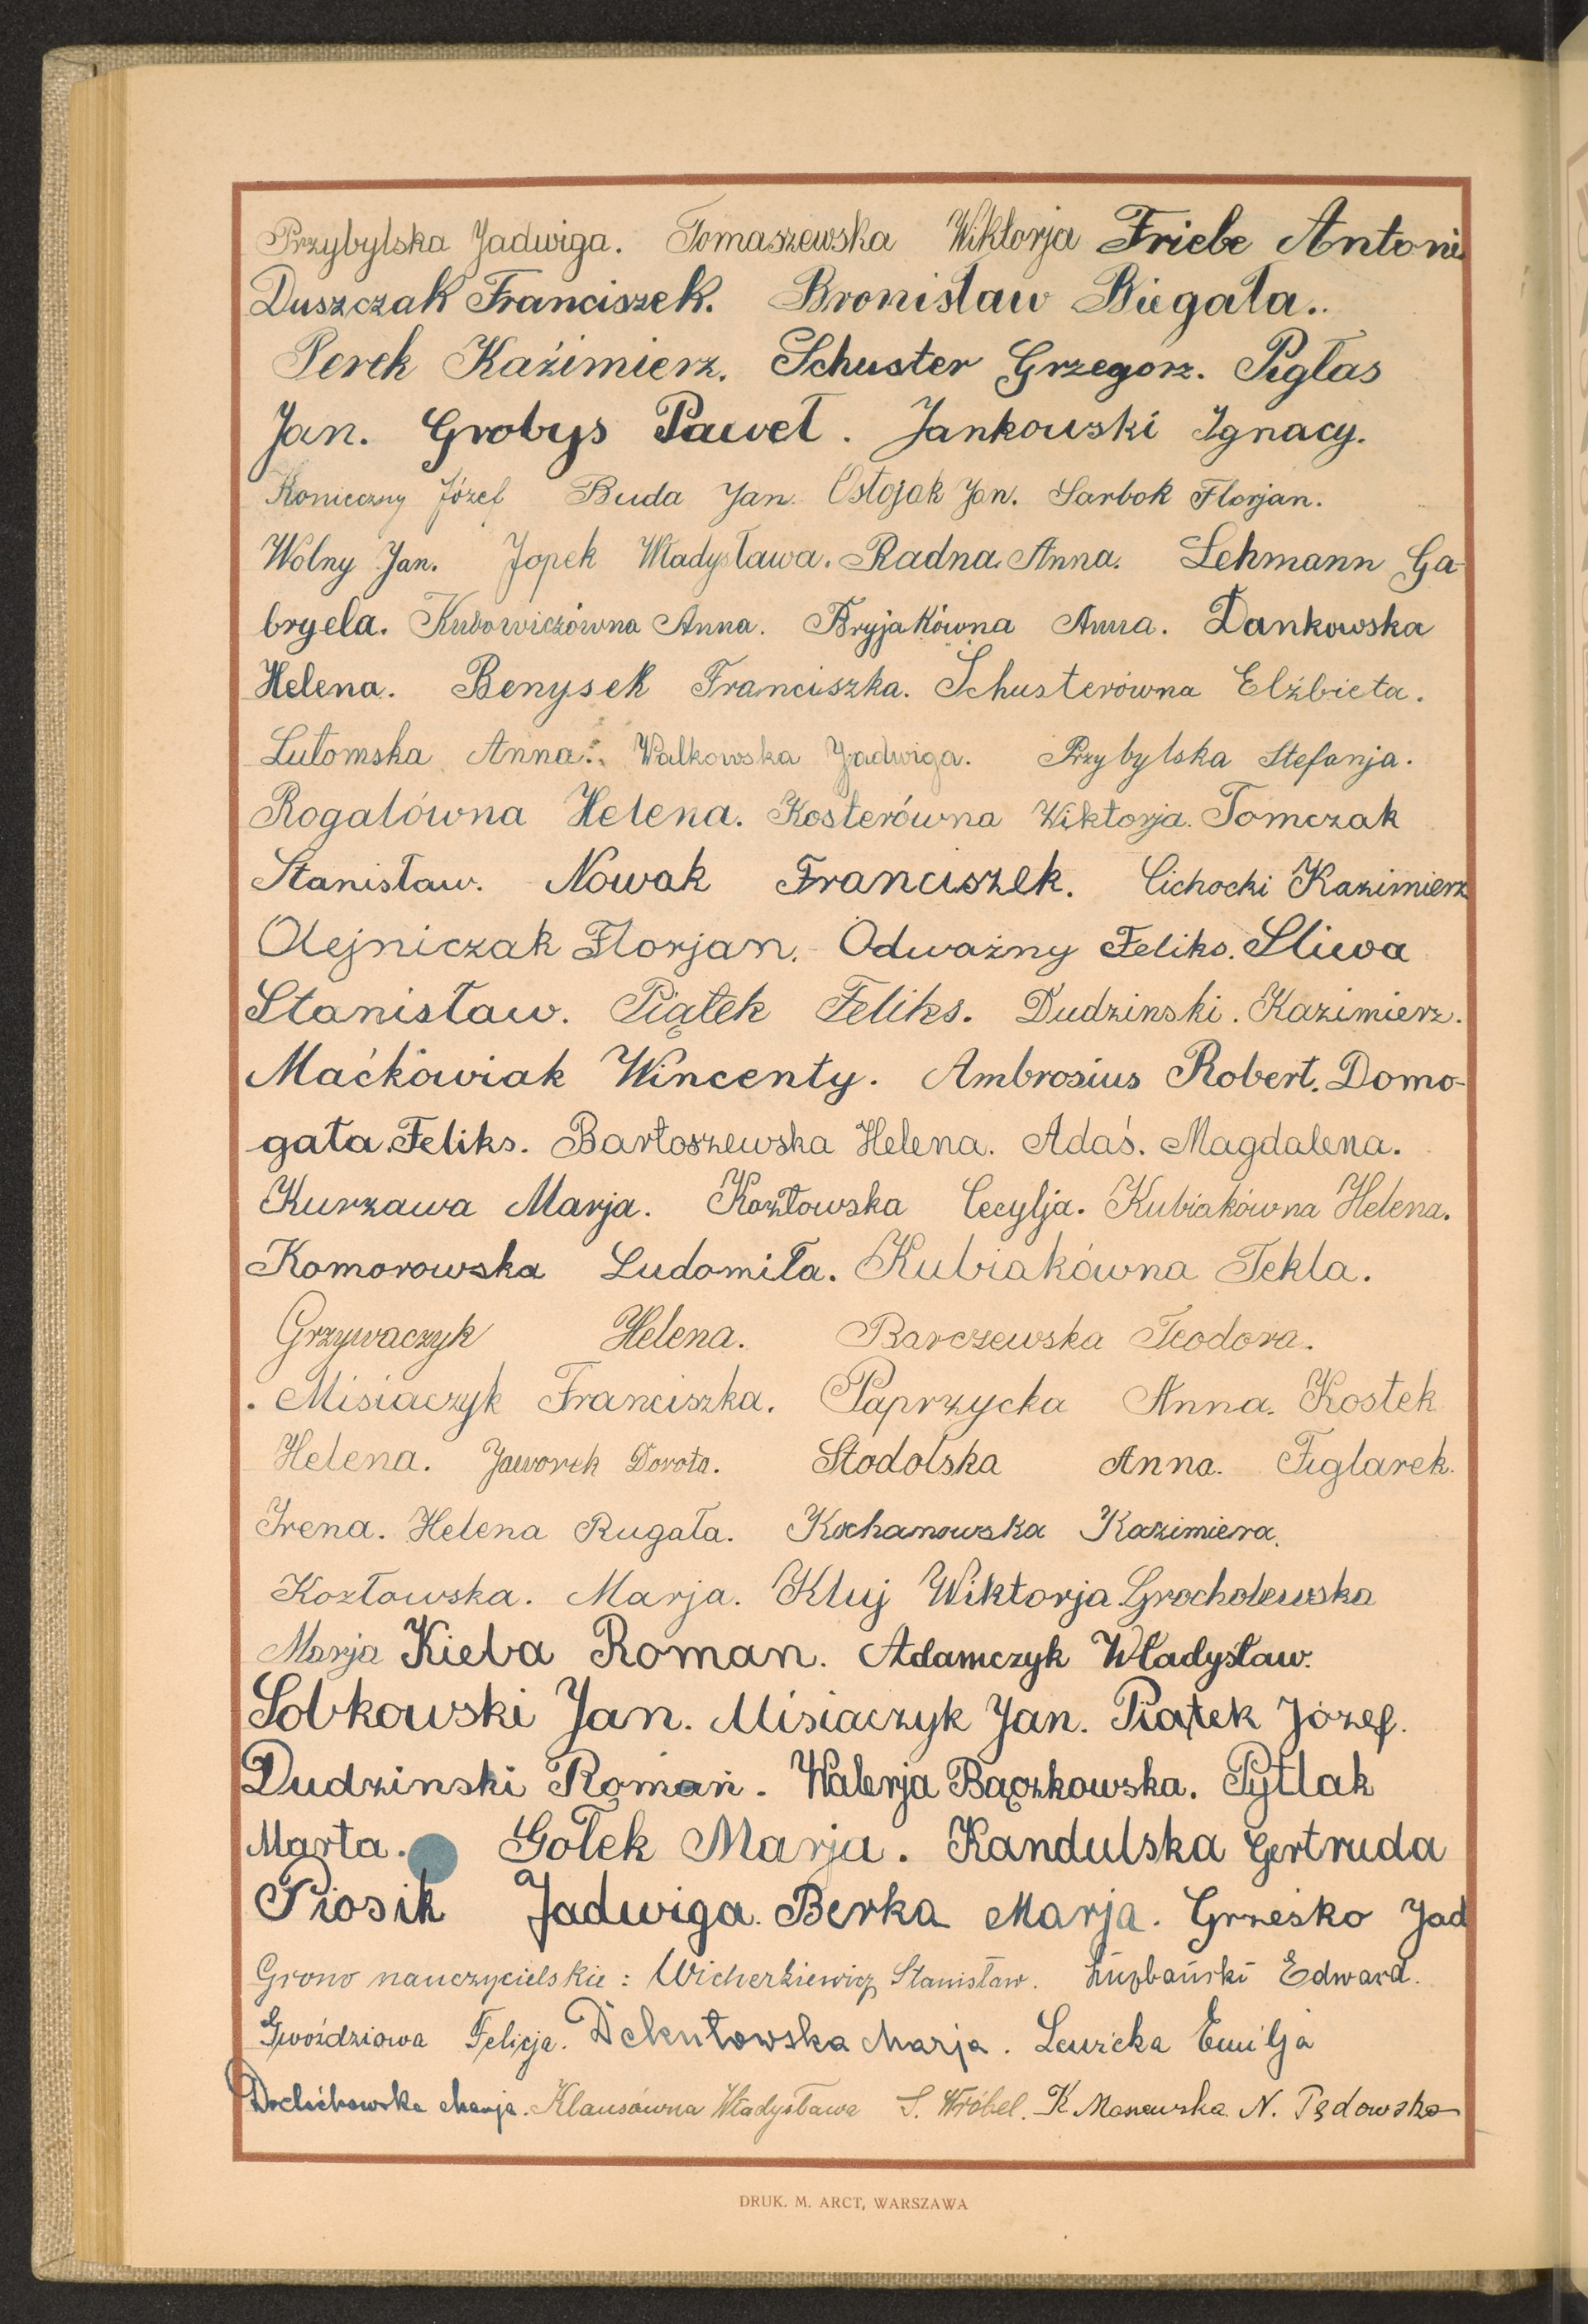 Przybylska Jadwiga. Tomaszewska Wiktorja Friebe Antoni
Duszczak Franciszek. Bronisław Biegała.
Perek Kaźimierz. Schuster Grzegorz. Pigłas
Jan. Grobys Paweł. Jankowski Ignacy.
Konieczny Józef Buda Jan. Ostojak Jan. Sarbok Florjan.
Wolny Jan. Jopek Władysława. Radna Anna. Lehmann Ga-
bryela. Kubowiczówna Anna. Bryjakówna Anna. Dankowska
Helena. Benysek Franciszka. Schusterówna Elżbieta.
Lutomska Anna. Walkowska Jadwiga. Przybylska Stefanja.
Rogalówna Helena. Kosterówna Wiktorja. Tomczak
Stanisław. Nowak Franciszek. Cichocki Kazimierz
Olejniczak Florjan. Odważny Feliks. Sliwa
Stanisław. Piątek Feliks. Dudzinski. Kazimierz.
Maćkowiak Wincenty. Ambrosius Robert. Domo-
gała Feliks. Bartoszewska Helena. Adaś. Magdalena.
Kurzawa Marja. Kozłowska Cecylja. Kubiakówna Helena.
Komorowska Ludomiła. Kubiakówna Tekla.
Grzywaczyk Helena. Barczewska Teodora.
Misiaczyk Franciszka. Paprzycka Anna. Kostek
Helena. Jaworek Dorota. Stodolska Anna. Figlarek.
Irena. Helena Rugała. Kochanowska Kazimiera.
Kozłowska. Marja. Kluj Wiktorja Grocholewska
Marja Kieba Roman. Adamczyk Władysław.
Sobkowski Jan. Misiaczyk Jan. Piątek Józef.
Dudzinski Roman. Walerja Bączkowska. Pytlak
Marta. Gołek Marja. Kandulska Gertruda
Piosik Jadwiga. Berka Marja. Grześko Jad
Grono nauczycielskie: Wicherkiewicz Stanisław. Edward.
Gwoździowa Felicja. Dekutowska Marja. Lewicka Emilja
Marja. Klausówna Władysława S. Wróbel. K. N.
DRUK. M. ARCT, WARSZAWA